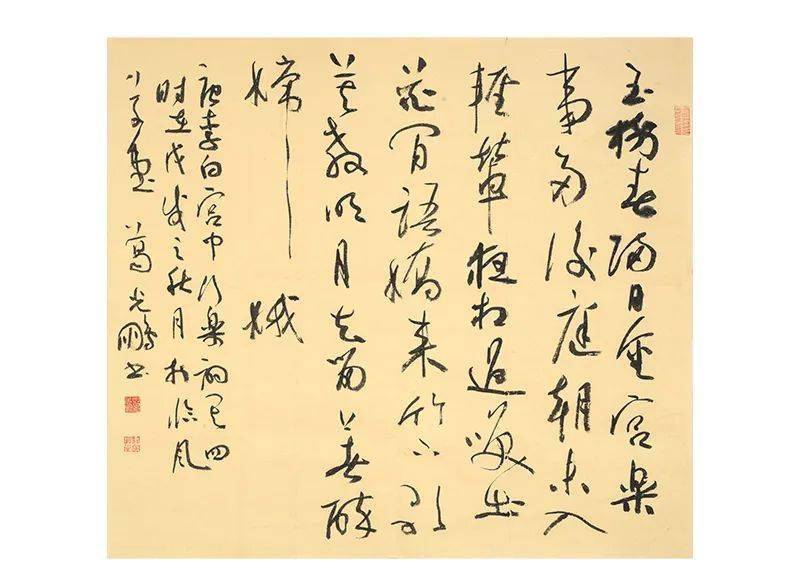 玉樹春歸日金宮樂
事多後庭朝未入
輕輦夜相過笑出
花間語嬌來竹下歌
莫教明月去留著醉
嫦娥
唐李白宮中行樂詞其四
時在戊戌之秋月於臨風
小 葛光鵬书